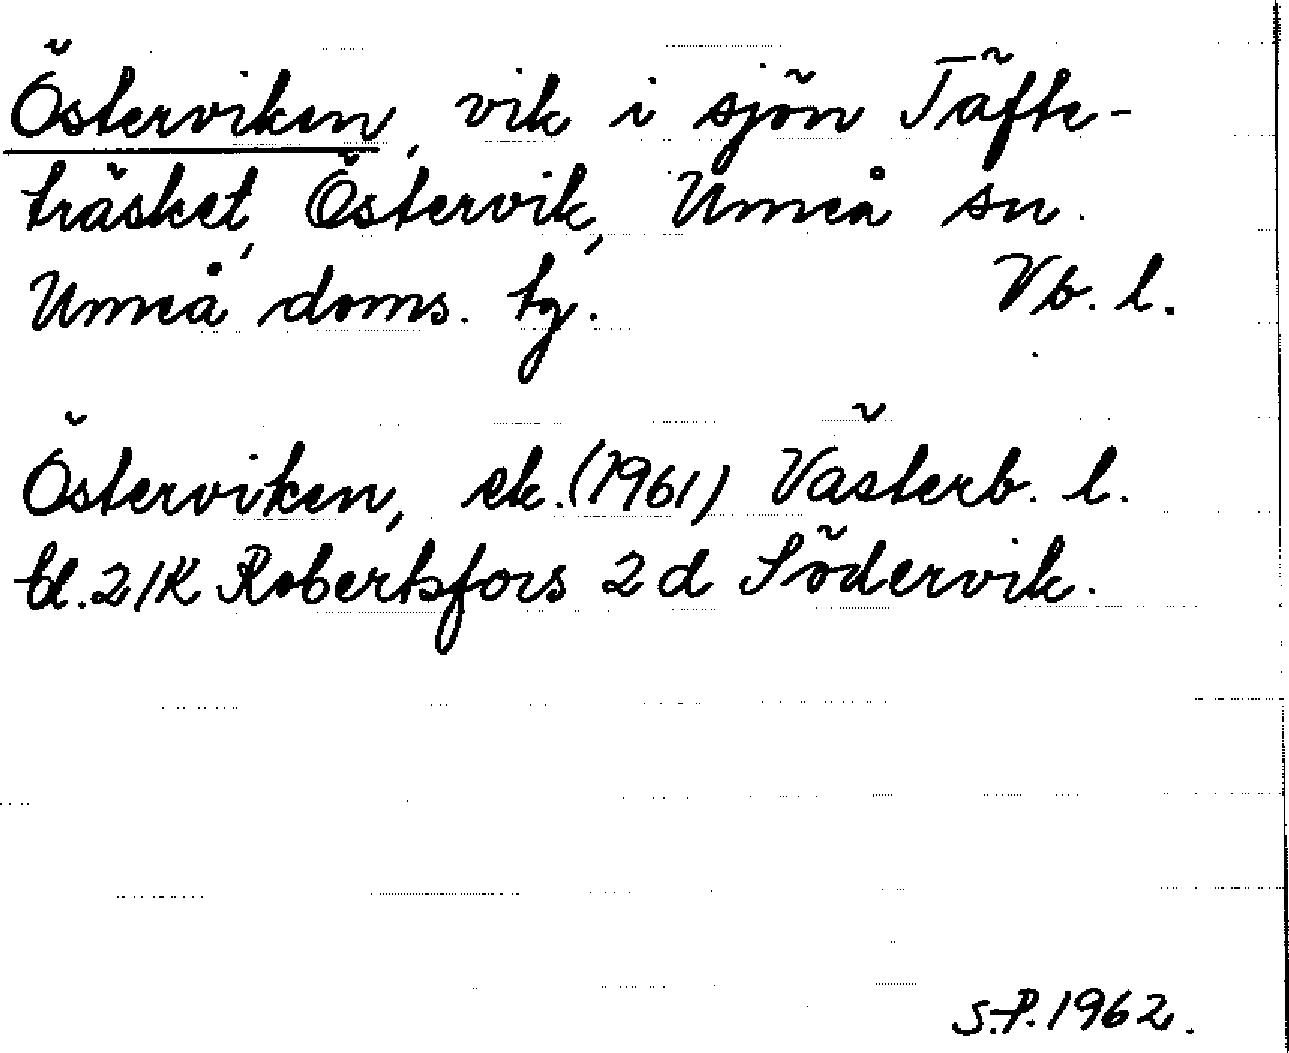 Österviken, vik i sjön Täfte-
träsket, Östervik, Umeå sn.
Umeå doms. tg. Vb. l.
Österviken, ek. (1961) Västerb. l.
bl. 21K Robertsfors 2 d Södervik.
S.P. 1962.